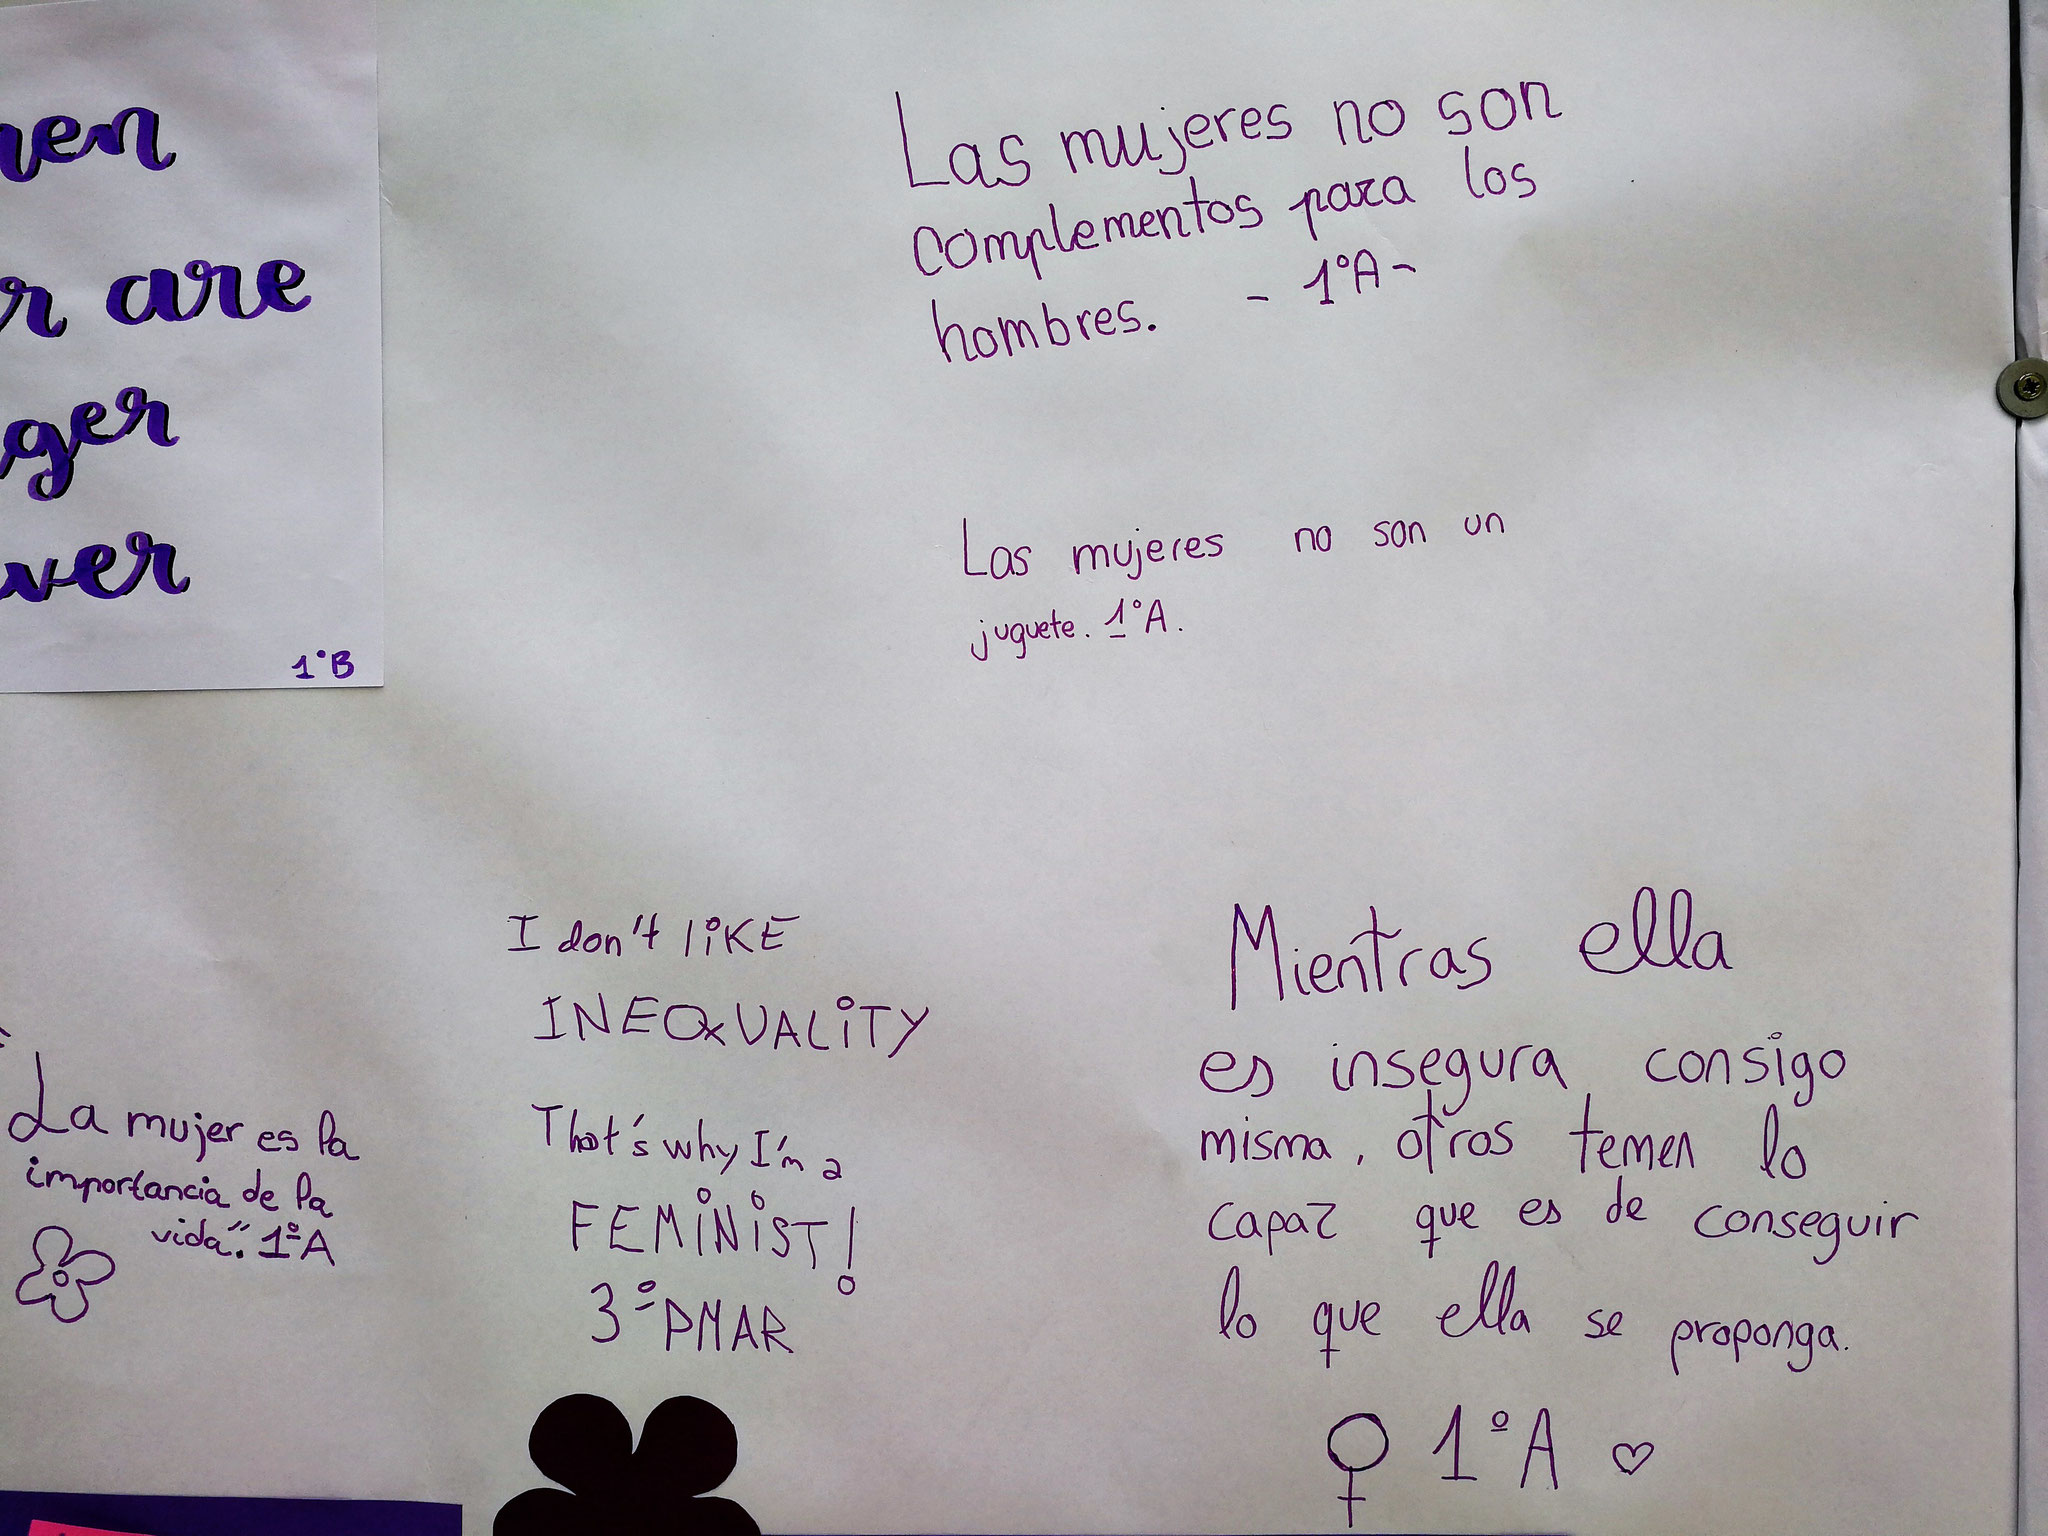 are
1°B
Las mujeres no son
complementos para los
hombres. - 1°A -
Las mujeres no son un
juguete. 1°A.
La mujer es la
importancia de la
vida". 1ºA
I don't liKE
INEQUALiTY
That's why I'm a
FEMiNiST!
3ºPMAR
Mientras ella
es insegura consigo
misma, otros temen lo
capaz que es de conseguir
lo que ella se proponga.
1ºA